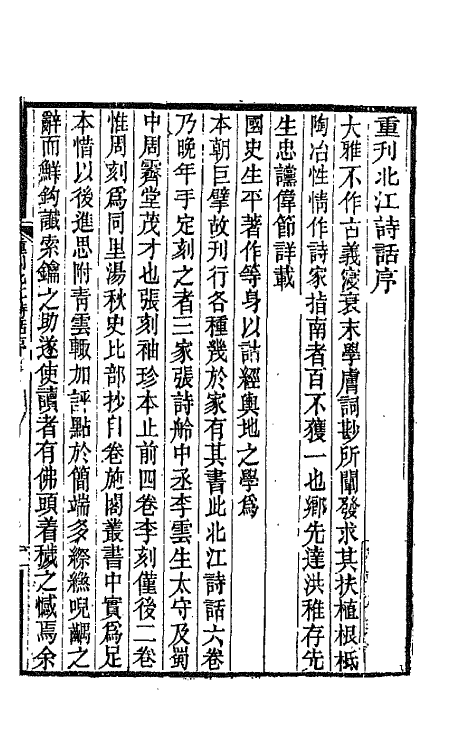 重刊北江詩話序
大雅不作古義寖衰末學膚詞尠所闡發求其扶植根柢
陶冶性情作詩家指南者百不獲一也鄉先達洪稚存先
生忠讜偉節詳載
國史生平著作等身以詁經輿地之學爲
本朝巨擘故刊行各種幾於家有其書此北江詩話六卷
乃晚年手定刻之者三家張詩舲中丞李雲生太守及蜀
中周霽堂茂才也張刻袖珍本止前四卷李刻僅後二卷
惟周刻爲同里湯秋史比部抄自卷施閣叢書中實爲足
本惜以後進思附青雲輒加評點於簡端多繆繞睨齲之
辭而鮮鉤讖索鑰之助遂使讀者有佛頭着穢之憾焉余